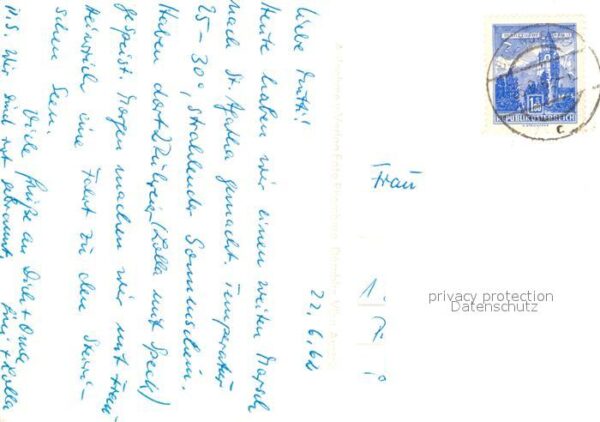 22.6.60
Liebe Mutti!
Heute haben wir einen weiten Marsch
nach St. Agatha gemacht. Temperatur
25–30°, strahlender Sonnenschein.
Haben dort (Lolla mit Speck)
gespeist. Morgen machen wir mit Frau
Heinrich eine Fahrt zu den
schen Seen.
Viele Grüße an Dich + Oma
N.S. Wir sind rot gebrannt. + Lolla
Frau
1.
7.
P
REPUBLIK ÖSTERREICH
privacy protection
Datenschutz